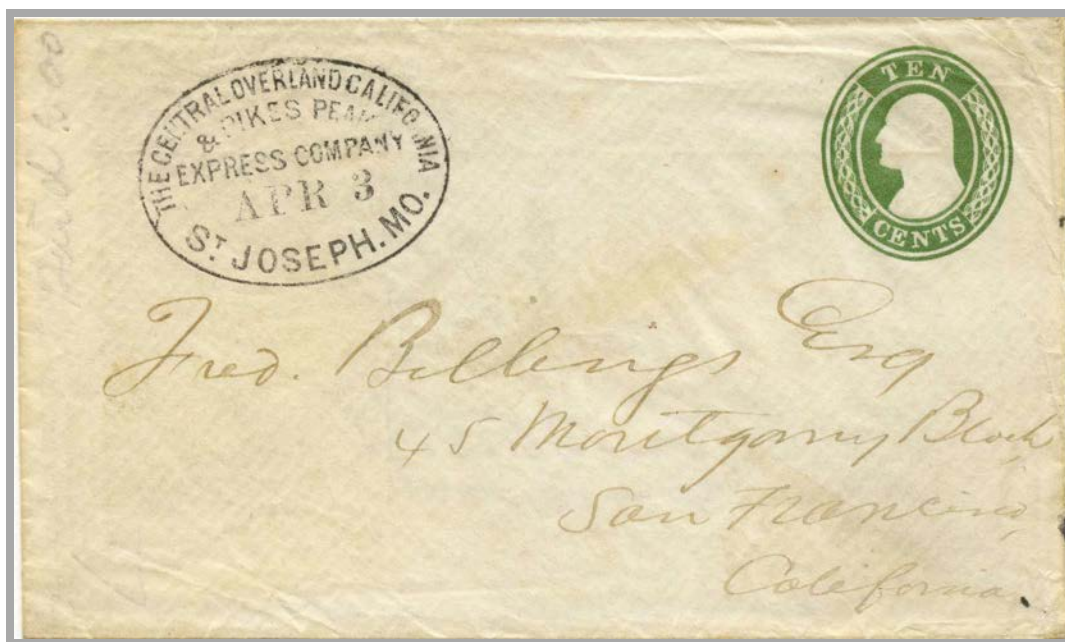 THE CENTRAL OVERLAND CALIFORNIA
& PIKES PEAK
EXPRESS COMPANY
APR 3
ST. JOSEPH. MO.
TEN
CENTS
Fred. Billings Esq
45 Montgomy Block
San Francisco,
California.